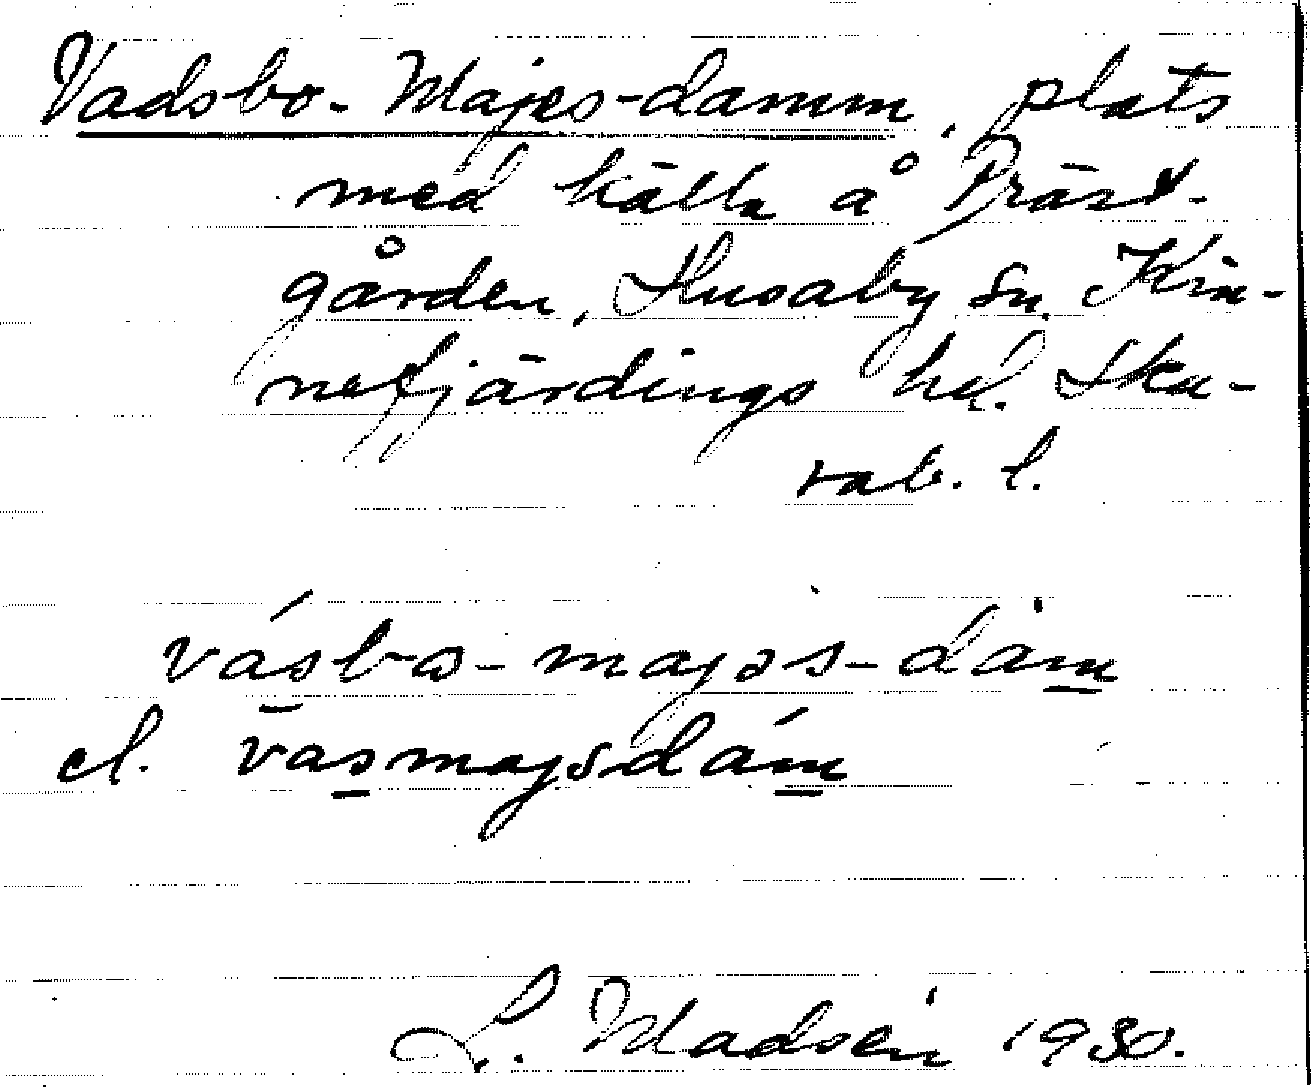 Vadsbo-Majes-damm, plats
med källa å Präst-
gården, Husaby sn. Kin-
nefjärdings hd. Ska-
rab. l.
vásbo-majəs-dàm
el. vasmajsdám
L. Madsén 1930.